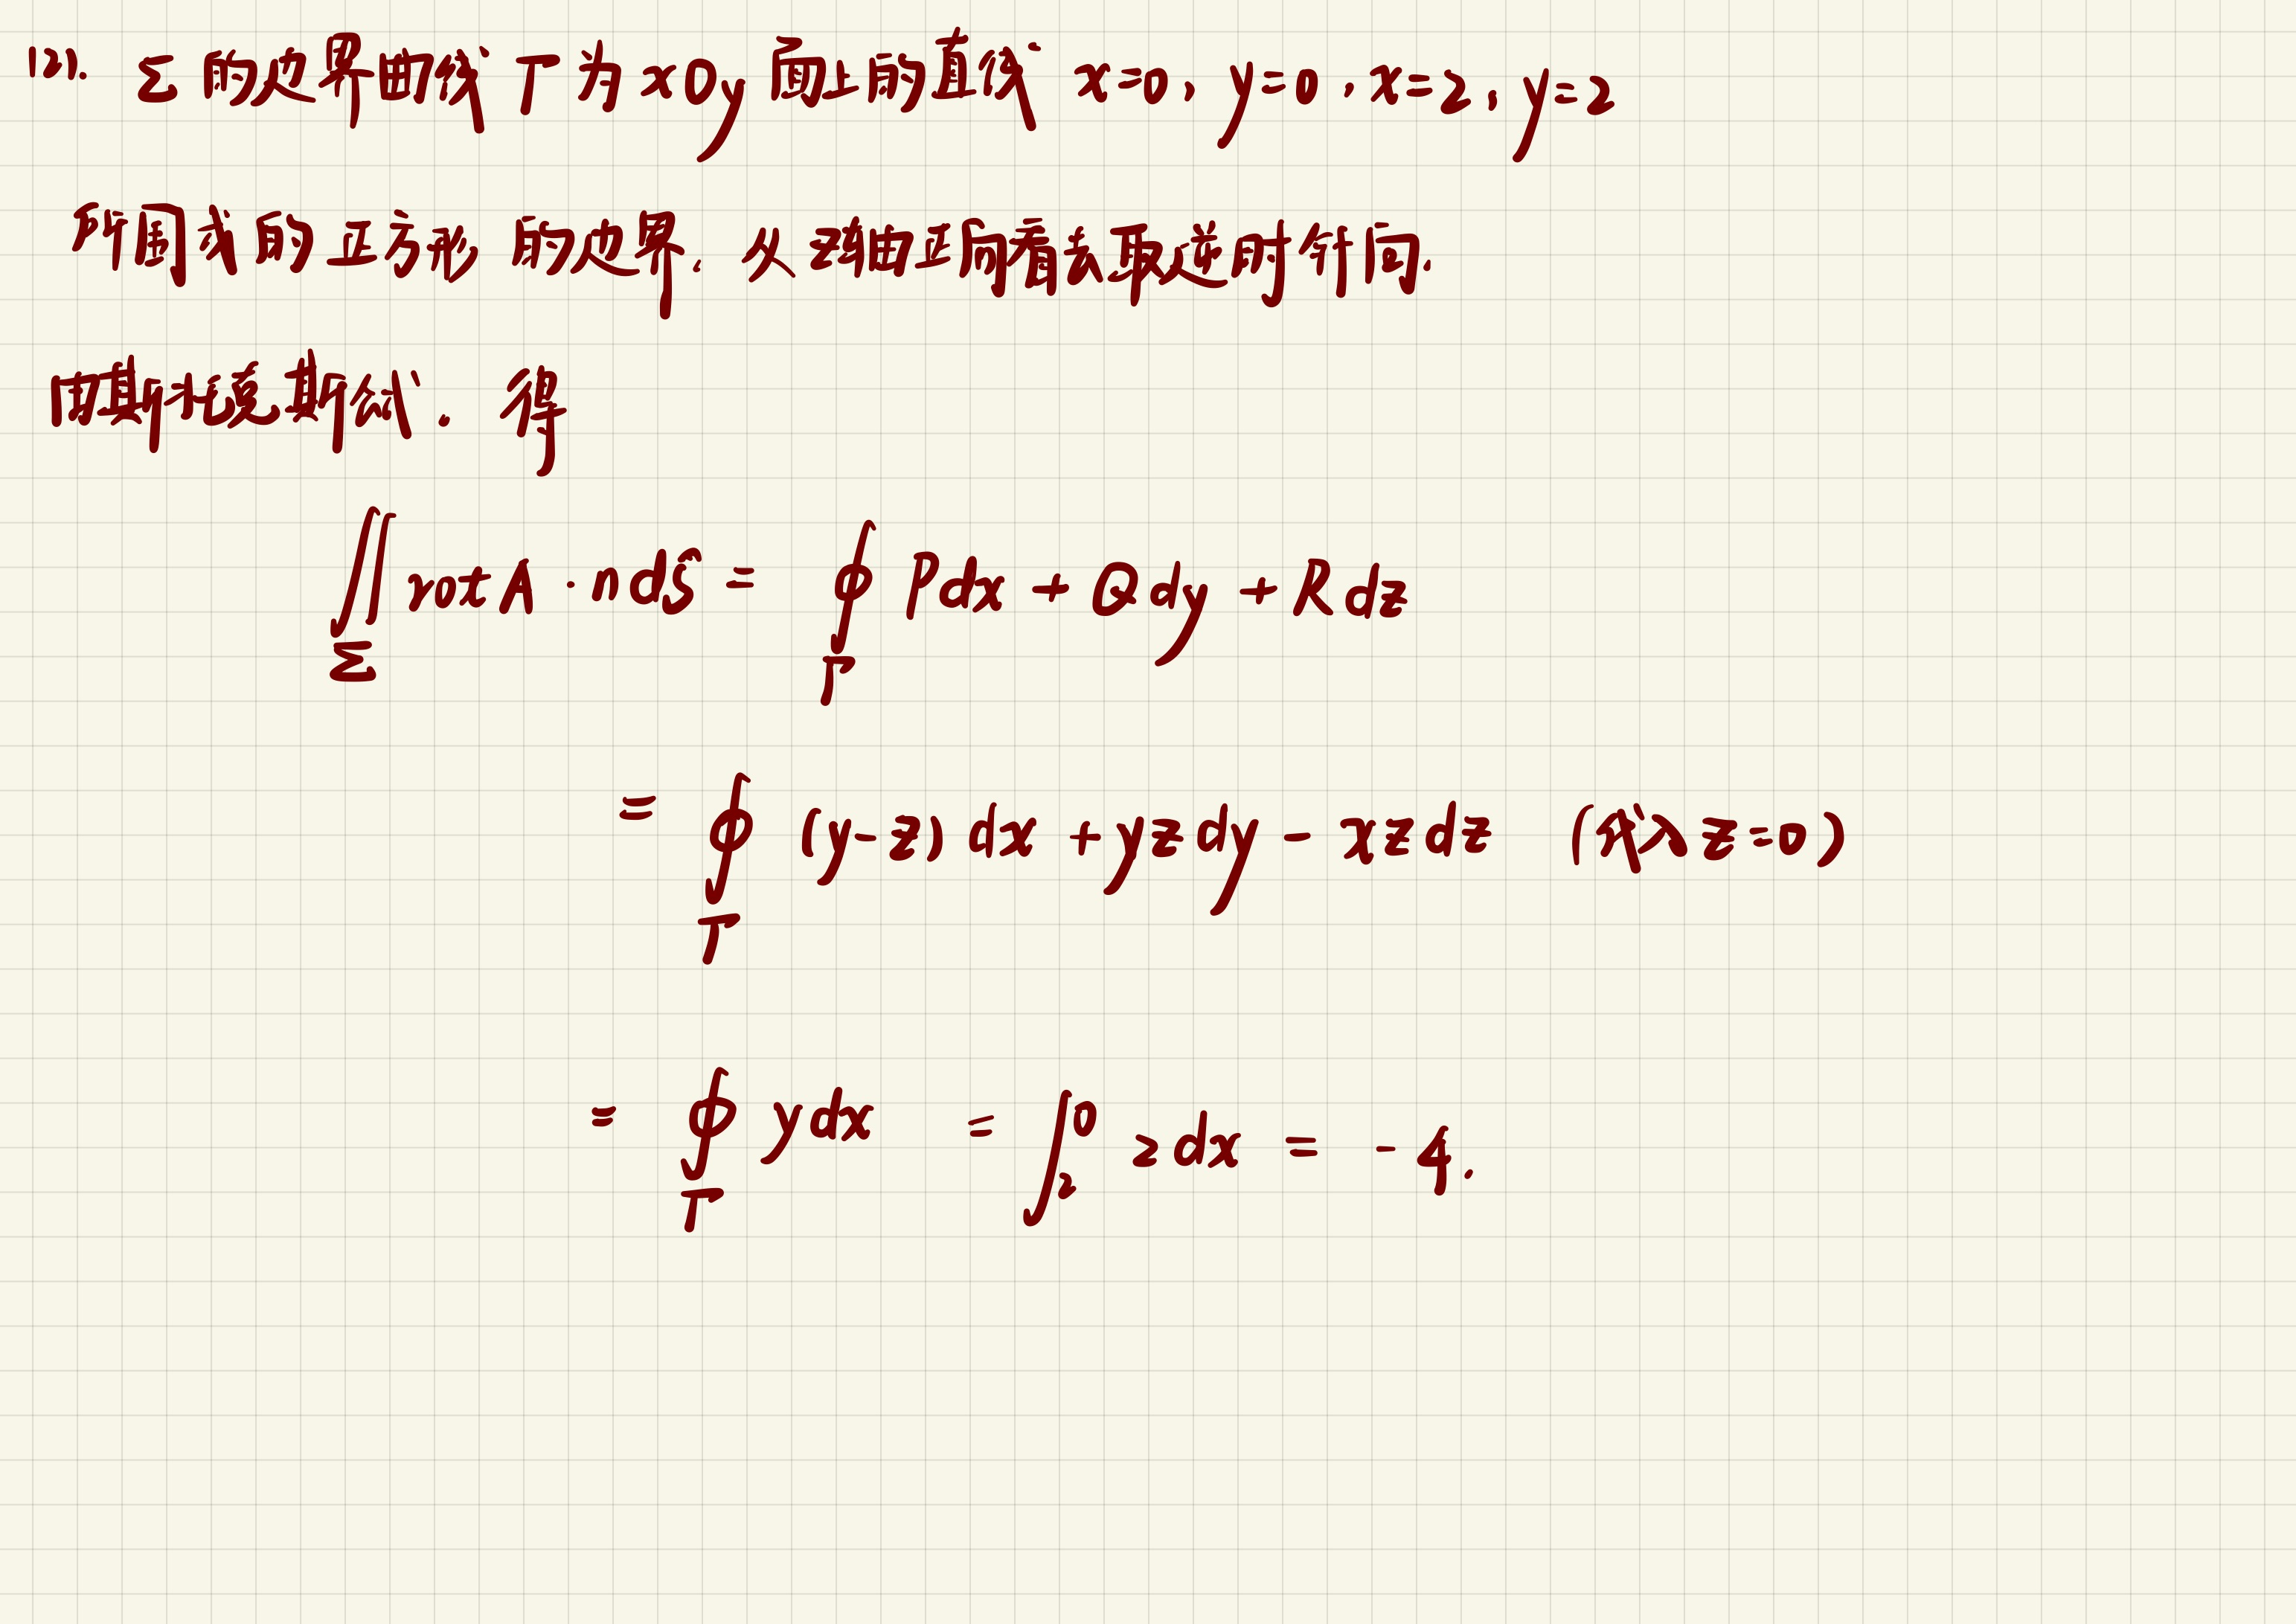 (2). Σ的边界曲线Γ为xOy面上的直线 x=0, y=0, x=2, y=2
所围成的正方形的边界. 从z轴正向看去取逆时针向.
由斯托克斯公式. 得
∬_Σ rot A · n dS = ∮_Γ Pdx + Qdy + Rdz
= ∮_Γ (y-z)dx + yzdy - xzdz (代入z=0)
= ∮_Γ ydx = ∫_2^0 2dx = -4.